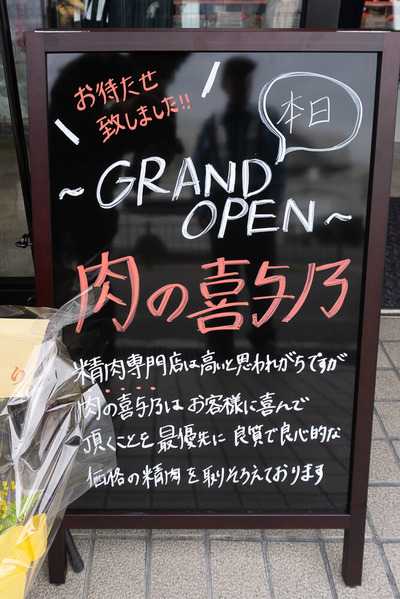 お待たせ
致しました!!
本日
~GRAND
OPEN~
肉の喜与乃
精肉専門店は高いと思われがちですが
肉の喜与乃はお客様に喜んで
頂くことを最優先に良質で良心的な
価格の精肉を取りそろえております